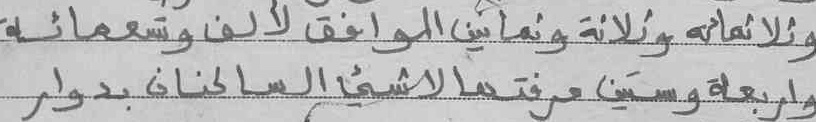 وثلاثمائه وثلاثة وثمانين الموافق لألف وتسعمائة
واربعة وستين عرفتما الاشيئ الساكنان بدوار